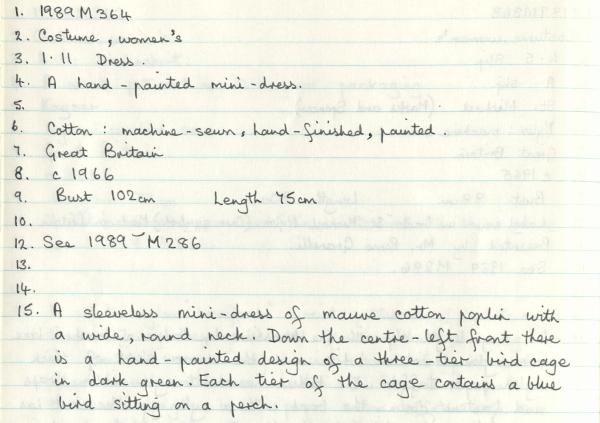 1. 1989 M 364
2. Costume, women's
3. 1.11 Dress.
4. A hand-painted mini-dress.
5.
6. Cotton: machine-sewn, hand-finished, painted.
7. Great Britain
8. c 1966
9. Bust 102cm Length 75cm
10.
12. See 1989-M286
13.
14.
15. A sleeveless mini-dress of mauve cotton poplin with
a wide, round neck. Down the centre-left front there
is a hand-painted design of a three-tier bird cage
in dark green. Each tier of the cage contains a blue
bird sitting on a perch.